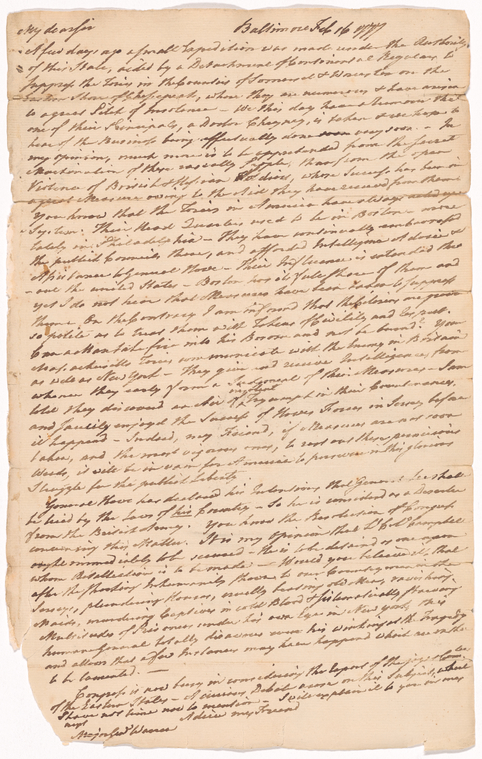 My dear sir Baltimore Feb 16 1777
A few days ago a small Expedition was made under the Authority
of this State, aided by a Detachment of Continental Regulars, to
suppress the Tories in the Counties of Somerset & Worcester on the
Eastern Shore of Chesapeak, where they are numerous & have arisen
to a great Pitch of Insolence - We this day hear a Rumour that
one of their Principals, a Doctor Cheyney, is taken & we hope to
hear of the Business being effectually done very soon. - In
my opinion, much more is to be apprehended from the secret
Machinations of these rascally People, than from the open
Violence of British & Hessian Soldiers, whose Success has been in
a great Measure owing to the Aid they have received from them
You know that the Tories in America have always acted upon
System. Their Head Quarters used to be in Boston - more
lately in Philadelphia - They have continually embarrassd
the publick Councils there, and afforded Intelligence Advice &
Assistance to General Howe - Their Influence is extended thro
- out the united States - Boston has its full share of them and
yet I do not hear that Measures have been taken to suppress
them - On the Contrary I am informd that the Citizens are grown
so polite as to treat them with Tokens of Civility and Respect -
Can a Man take fire into his Bosom and not be burned? Your
Massachusetts Tories communicate with the Enemy in Britain
as well as New York - They give and receive Intelligence, from
whence they early form a Judgment of their Measures - I am
told they discoverd an Air of insolent Tryumph in their Countenances,
and saucily enjoyed the Success of Howes Forces in Jersey, before
it happend - Indeed, my Friend, if Measures are not soon
taken, and the most vigorous ones, to root out these pernicious
Weeds, it will be in vain for America to persevere in this glorious
Struggle for the publick Liberty
General Howe has declared his Intentions that General Lee shall
be tried by the Laws of his Country - So he is considerd as a Deserter
from the British Army - You know the Resolution of Congress
concerning this Matter. It is my opinion that Lt Col Campbell
ought immediately to be secured - He is to be detaind as one upon
whom Retaliation is to be made - Would you believe it, that
after the shocking Inhumanity shown to our Countrymen in the
Jerseys, plundering Houses, cruelly beating old Men, ravishing
Maids, murdering Captives in cold Blood & sistematically starving
Multitudes of Prisoners under his own Eye in New York this
humane General totally disavows even his winking at the Tragedy
and allows that a few Instances may have happend which are rather
to be lamented. -
Congress is now busy in considering the Report of the joynt Comtee
of the Eastern States - A curious Debate arose on this Subject, which
I have not time now to mention - I will explain it to you in my
next
Adieu my Friend
Major Genl Warren